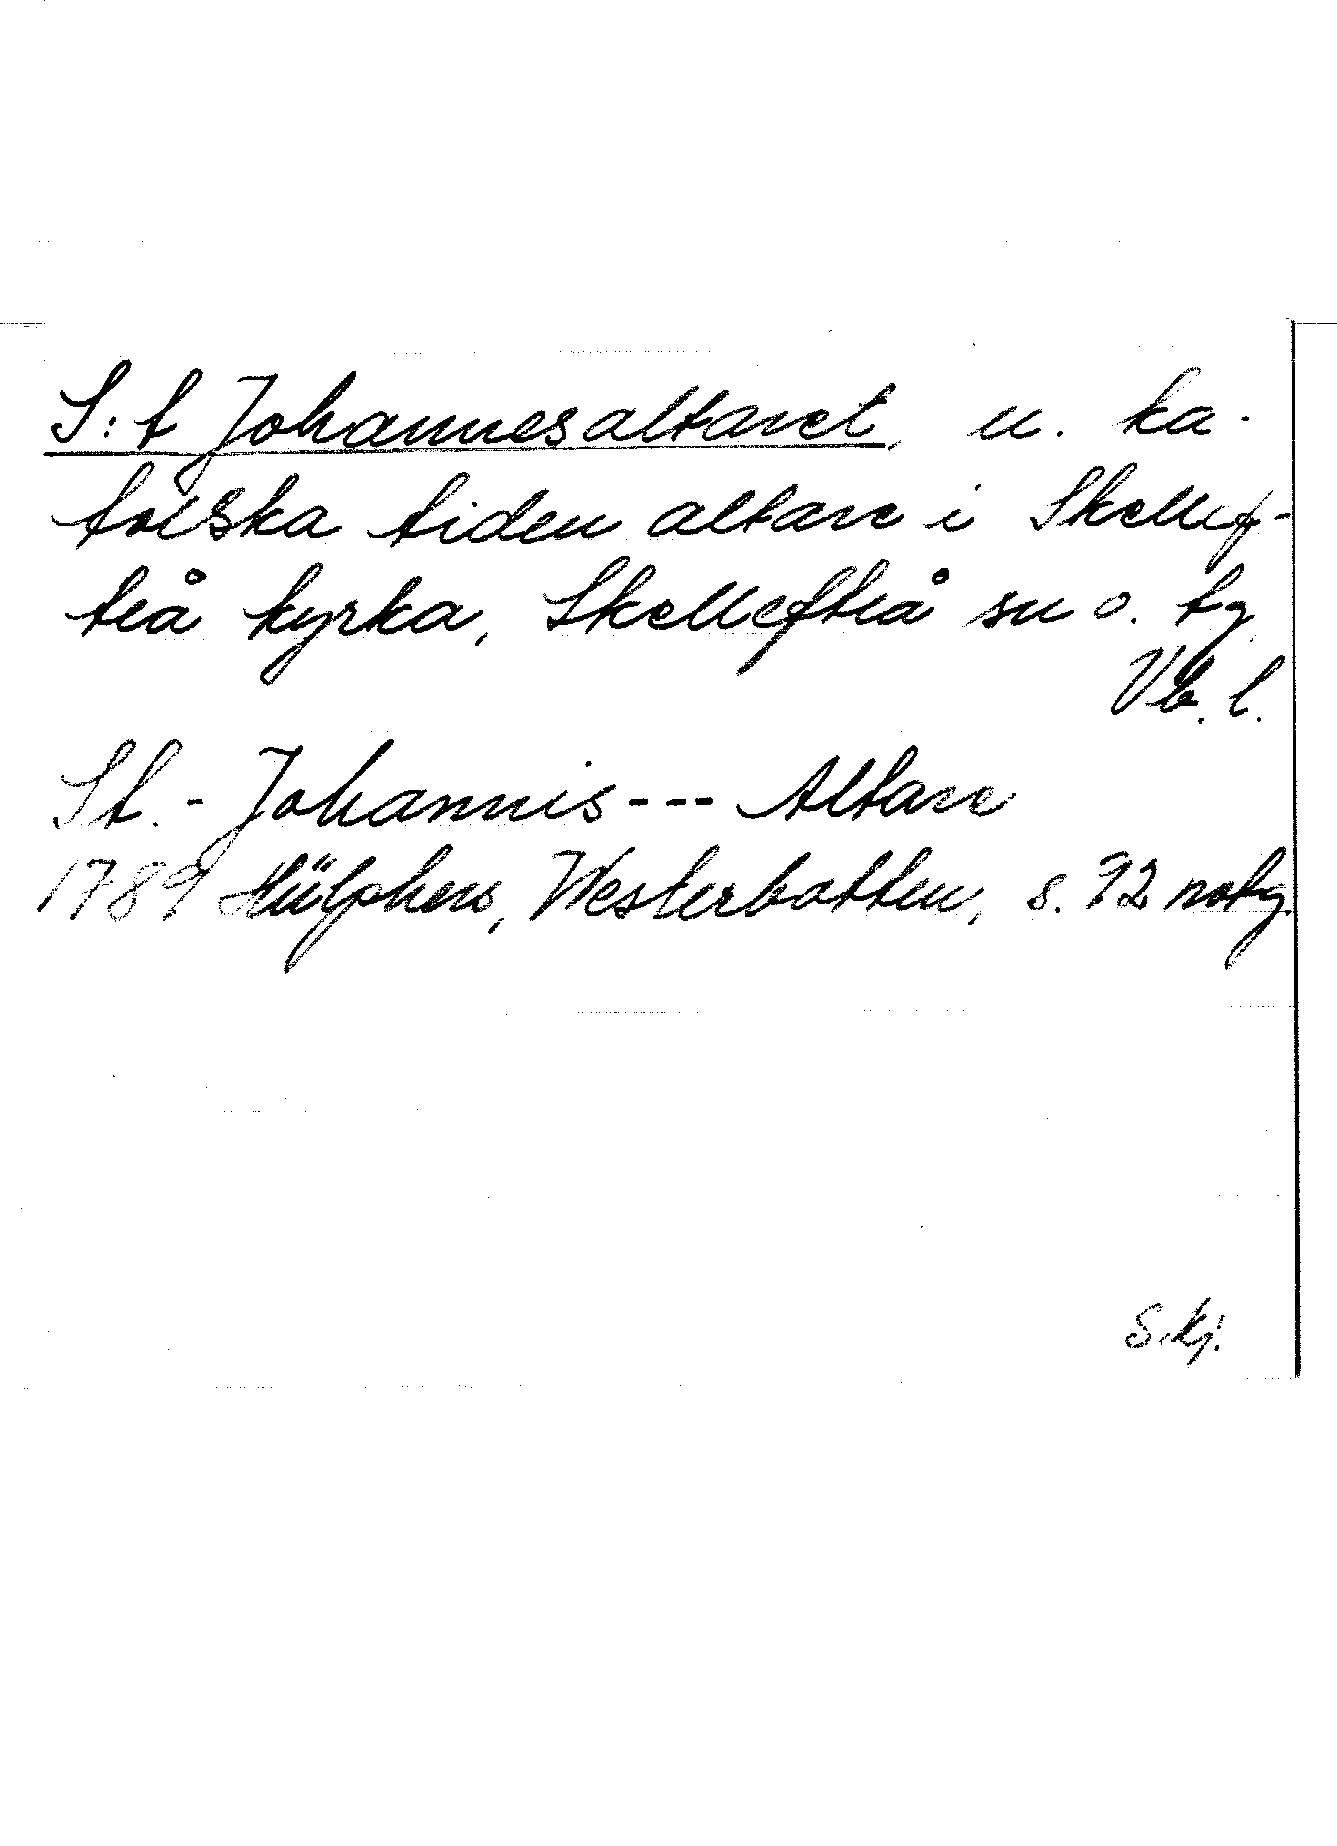 S:t Johannesaltaret, u. ka-
tolska tiden altare i Skellef-
teå kyrka, Skellefteå sn o. tg
Vb. l.
St. - Johannis --- Altare
1789 Hülphers, Westerbotten, s. 92 not g.
S. Kj.